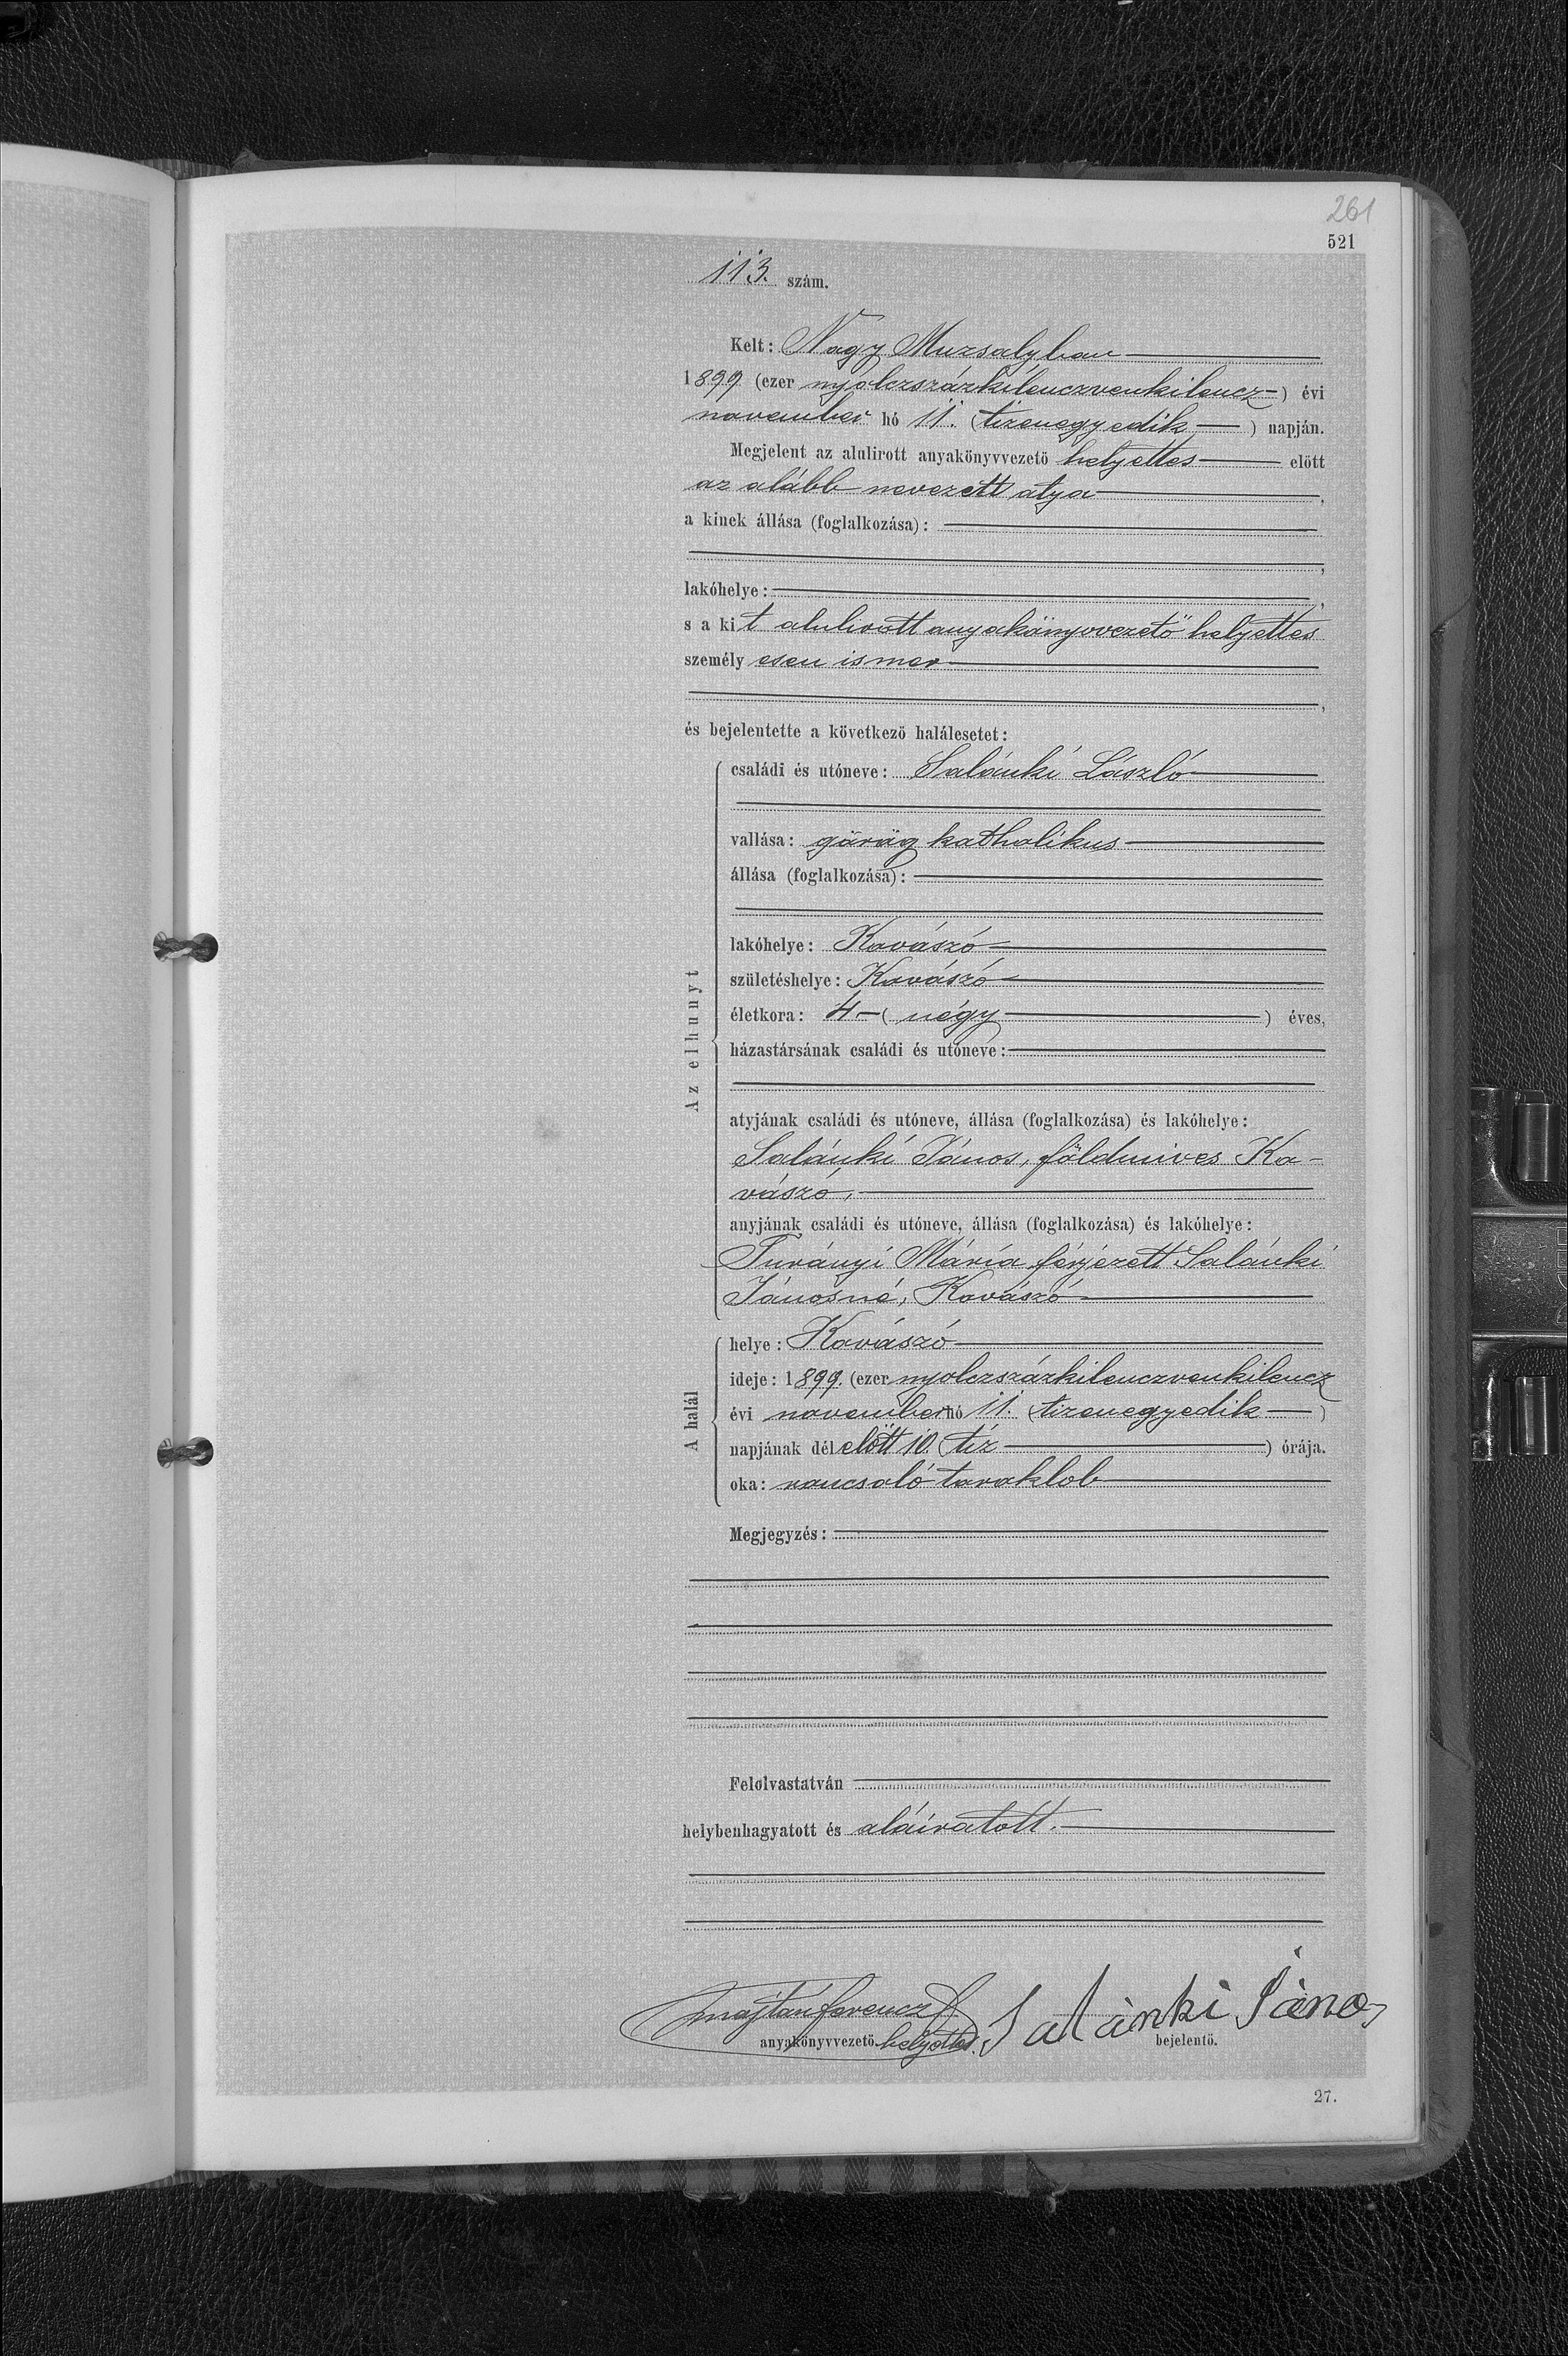 261
521
113. szám.
Kelt: Nagy Muzsalyban
1899. (ezer nyolczszázkilenczvenkilencz) évi
november hó 11. (tizenegyedik) napján.
Megjelent az alulirott anyakönyvvezető helyettes előtt
az alább nevezett atya,
a kinek állása (foglalkozása):
,
lakóhelye: ,
s a kit alulirott anyakönyvvezető helyettes
személyesen ismer
,
és bejelentette a következő halálesetet:
Az elhunyt
családi és utóneve: Salánki László
vallása: görög katholikus
állása (foglalkozása):
lakóhelye: Kovászó
születéshelye: Kovászó
életkora: 4 (négy) éves,
házastársának családi és utóneve:
atyjának családi és utóneve, állása (foglalkozása) és lakóhelye:
Salánki János, földmives Ko-
vászó,
anyjának családi és utóneve, állása (foglalkozása) és lakóhelye:
Turányi Mária férjezett Salánki
Jánosné, Kovászó
A halál
helye: Kovászó
ideje: 1899. (ezer nyolczszázkilenczvenkilencz
évi november hó 11. (tizenegyedik)
napjának délelőtt 10. (tíz) órája.
oka: roncsoló toroklob
Megjegyzés:
Felolvastatván
helybenhagyatott és aláiratott.
Majtán Ferencz Salánki János
anyakönyvvezető helyettes. bejelentő.
27.